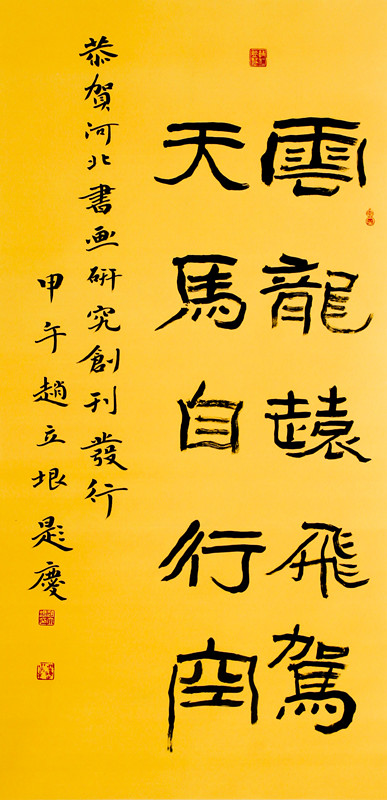 雲龍遠飛駕
天馬自行空
恭賀河北書画研究創刊發行
甲午趙立垠題慶